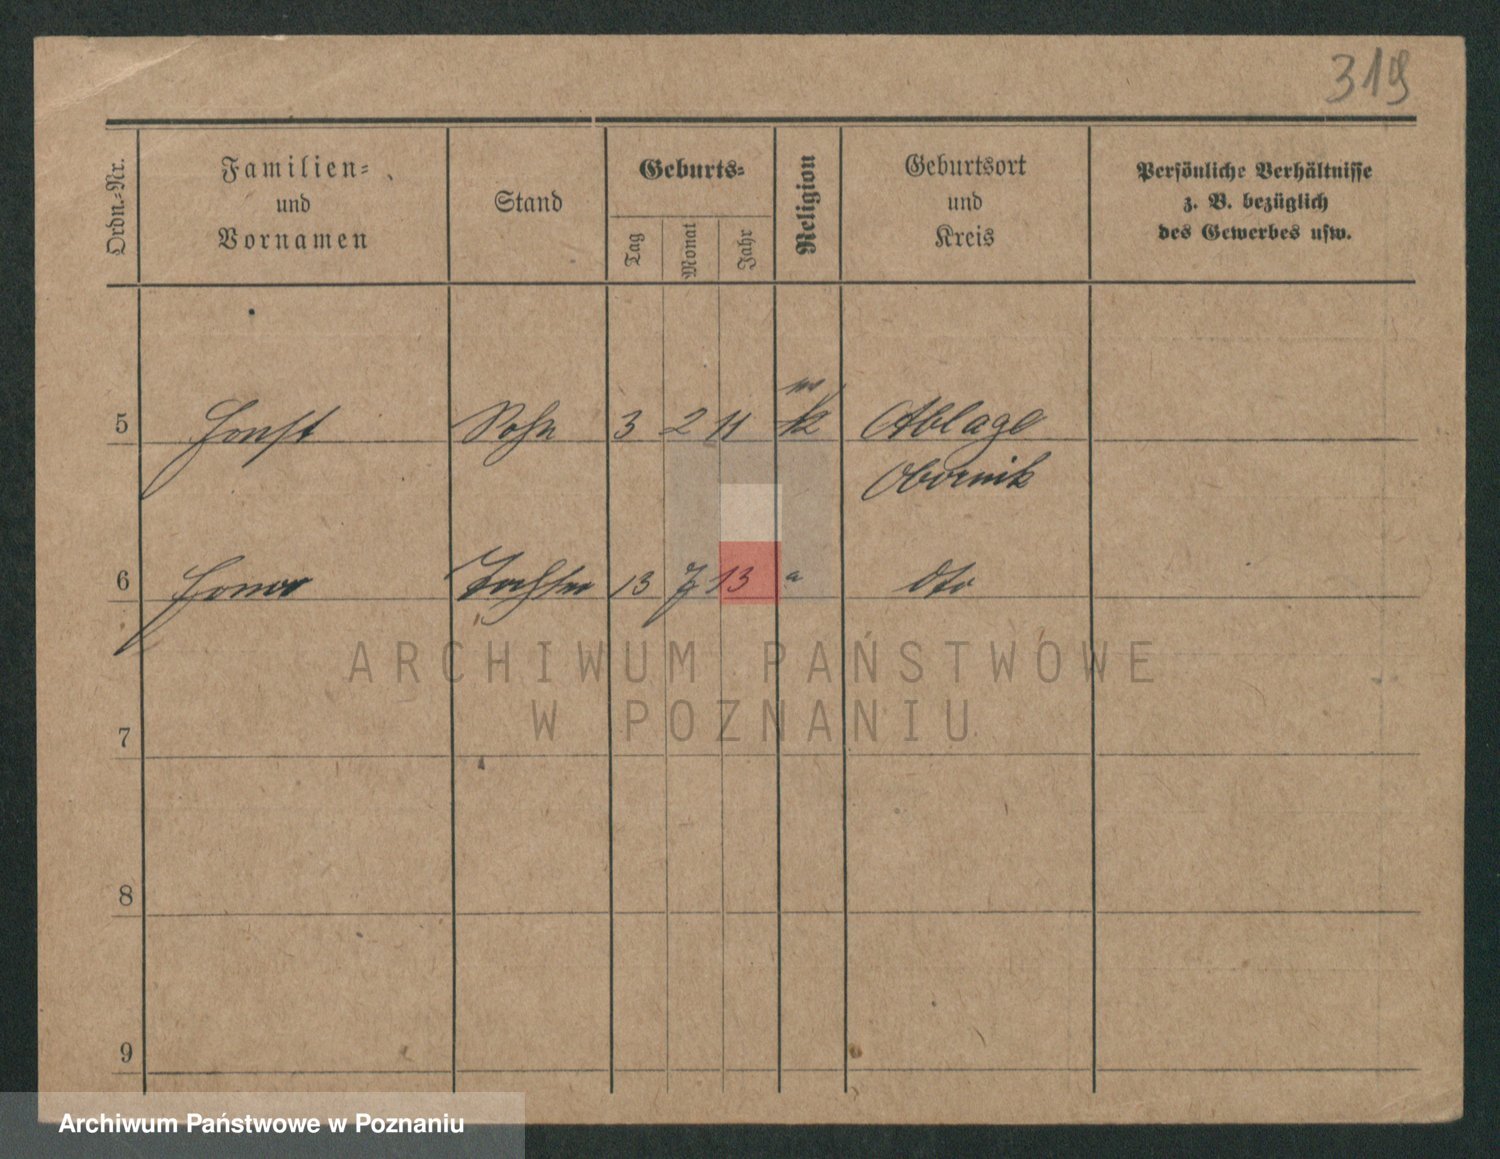 319
Ordn.-Nr.
Familien-
und
Vornamen
Stand
Geburts-
Tag
Monat
Jahr
Religion
Geburtsort
und
Kreis
Persönliche Verhältnisse
z. B. bezüglich
des Gewerbes usw.
5 Sohn 3 2 11 Ablage
Obornik
6 Tochter 13 7 13 dto
ARCHIWUM PAŃSTWOWE
W POZNANIU
7
8
9
Archiwum Państwowe w Poznaniu